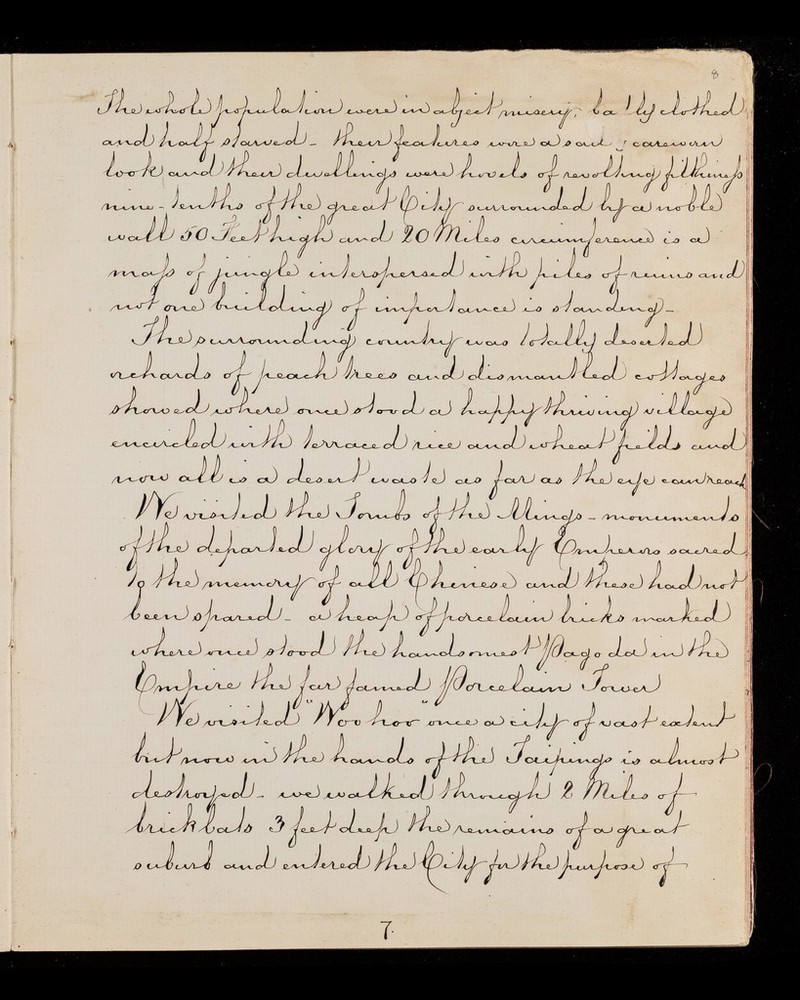 8
The whole population were in abject misery, ba ly clothed
and half starved - their features wore a sad careworn
look and their dwellings were hovels of revolting filthiness
nine-tenths of the great City surrounded by a noble
wall 50 Feet high and 20 Miles circumference is a
mass of jungle interspersed with piles of ruins and
not one building of importance is standing -
The surrounding country was totally deserted
orchards of peach trees and dismantled cottages
showed where once stood a happy thriving village
encircled with terraced rice and wheat fields and
now all is a desert waste as far as the eye can reach
We visited the Tombs of the Mings - monuments
of the departed glory of the early Emperors sacred
to the memory of all Chinese and these had not
been spared - a heap of porcelain bricks marked
where once stood the handsomest Pagoda in the
Empire the far famed Porcelain Tower
We visited "Woo hoo" once a city of vast extent
but now in the hands of the Taipings is almost
destroyed - we walked through 2 Miles of
brickbats 3 feet deep the remains of a great
suburb and entered the City for the purpose of
7.